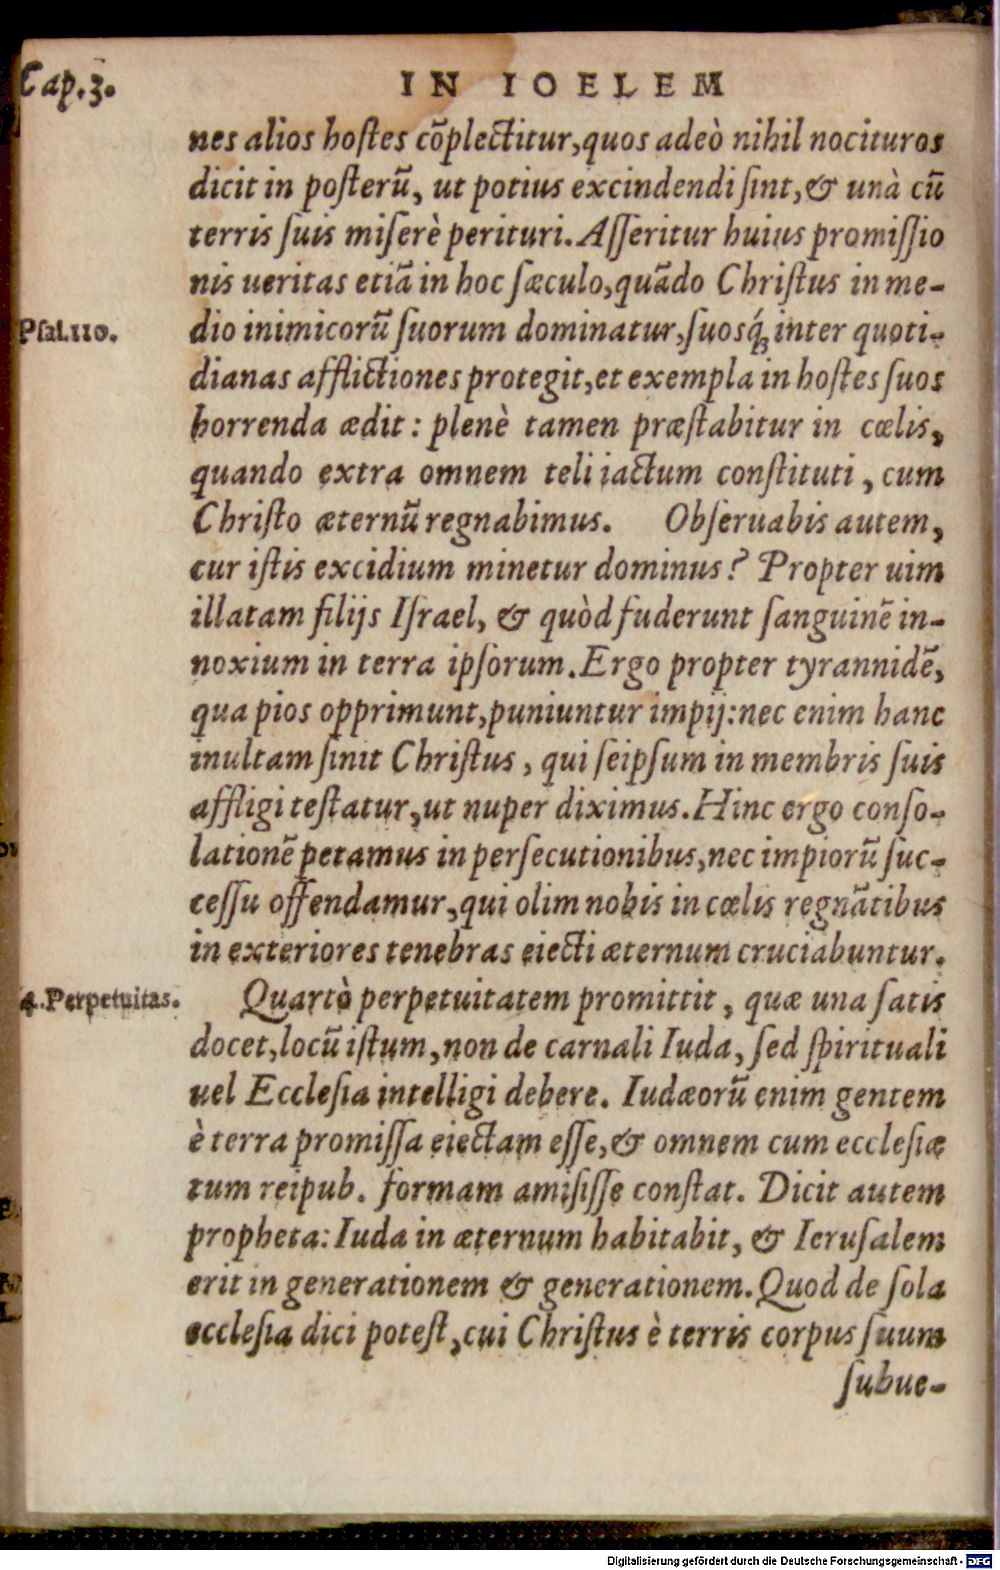 Cap.3.
IN IOELEM
nes alios hoſtes cõplectitur,quos adeò nihil nocituros
dicit in poſterũ, ut potius excindendi ſint,& unà cũ
terris ſuis miſerè perituri. Aſſeritur huius promiſſio
nis ueritas etiã in hoc ſæculo,quãdo Chriſtus in me-
Pſal.110.
dio inimicorũ ſuorum dominatur,ſuosq́; inter quoti-
dianas afflictiones protegit,et exempla in hoſtes ſuos
horrenda ædit: plenè tamen præſtabitur in cœlis,
quando extra omnem teli iactum conſtituti, cum
Chriſto æternũ regnabimus. Obſeruabis autem,
cur iſtis excidium minetur dominus? Propter uim
illatam filijs Iſrael, & quòd fuderunt ſanguinẽ in-
noxium in terra ipſorum. Ergo propter tyrannidẽ,
qua pios opprimunt,puniuntur impij: nec enim hanc
inultam ſinit Chriſtus, qui ſeipſum in membris ſuis
affligi teſtatur,ut nuper diximus. Hinc ergo conſo-
lationẽ petamus in perſecutionibus,nec impiorũ ſuc-
ceſſu offendamur,qui olim nobis in cœlis regnãtibus
in exteriores tenebras eiecti æternum cruciabuntur.
4.Perpetuitas.
Quartò perpetuitatem promittit, quæ una ſatis
docet,locũ iſtum,non de carnali Iuda, ſed ſpirituali
uel Eccleſia intelligi debere. Iudæorũ enim gentem
è terra promiſſa eiectam eſſe,& omnem cum eccleſiæ
tum reipub. formam amiſiſſe conſtat. Dicit autem
propheta: Iuda in æternum habitabit, & Ieruſalem
erit in generationem & generationem. Quod de ſola
eccleſia dici poteſt,cui Chriſtus è terris corpus ſuum
ſubue-
Digitalisierung gefördert durch die Deutsche Forschungsgemeinschaft - DFG